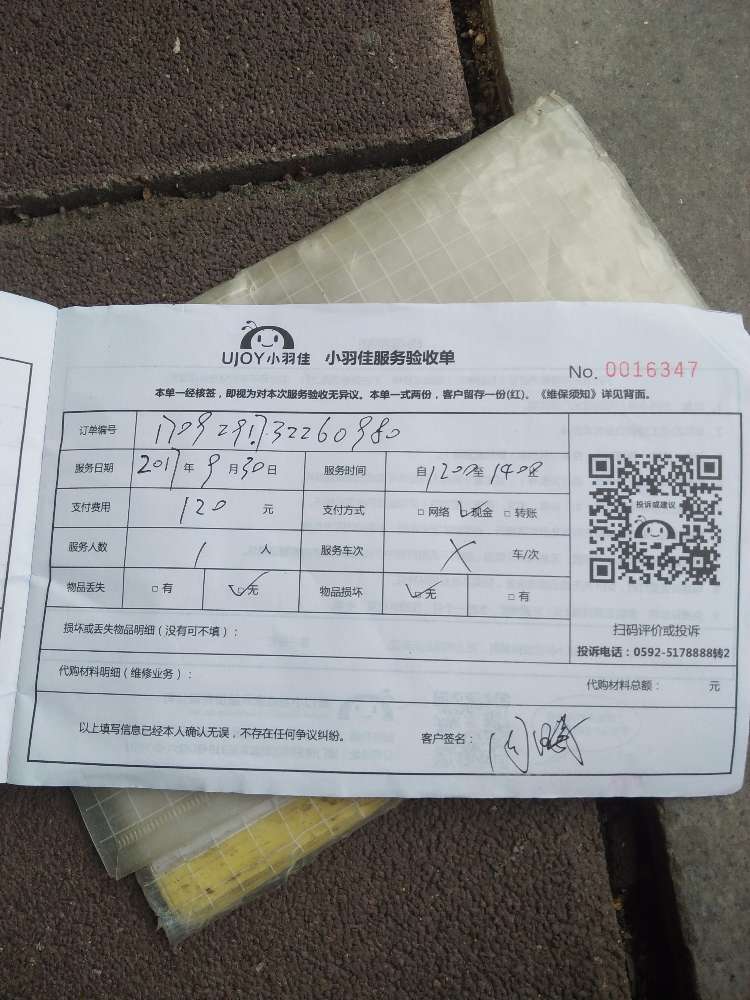 UJOY小羽佳 小羽佳服务验收单
No. 0016347
本单一经核签，即视为对本次服务验收无异议。本单一式两份，客户留存一份(红)。《维保须知》详见背面。
订单编号 1709291732260980
服务日期 2017年9月30日 服务时间 自1200至1400
支付费用 120 元 支付方式 □网络 ☑现金 □转账
服务人数 1 人 服务车次 X 车/次
物品丢失 □有 ☑无 物品损坏 ☑无 □有
投诉或建议
扫码评价或投诉
投诉电话：0592-5178888转2
损坏或丢失物品明细（没有可不填）：
代购材料明细（维修业务）： 代购材料总额： 元
以上填写信息已经本人确认无误，不存在任何争议纠纷。 客户签名：